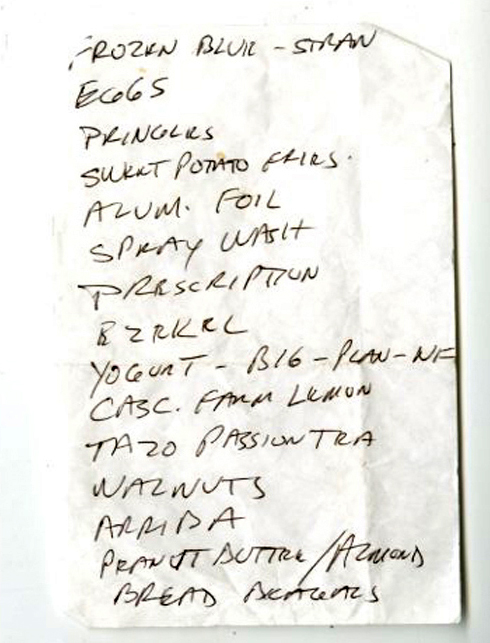 FROZEN BLUE - STRAW
EGGS
PRINGLES
SWEET POTATO FRIES.
ALUM. FOIL
SPRAY WASH
PRESCRIPTION
YOGURT - BIG - PLAN - NF
CASC. FARM LEMON
TAZO PASSION TEA
WALNUTS
ARRIBA
PEANUT BUTTER / ALMOND
BREAD